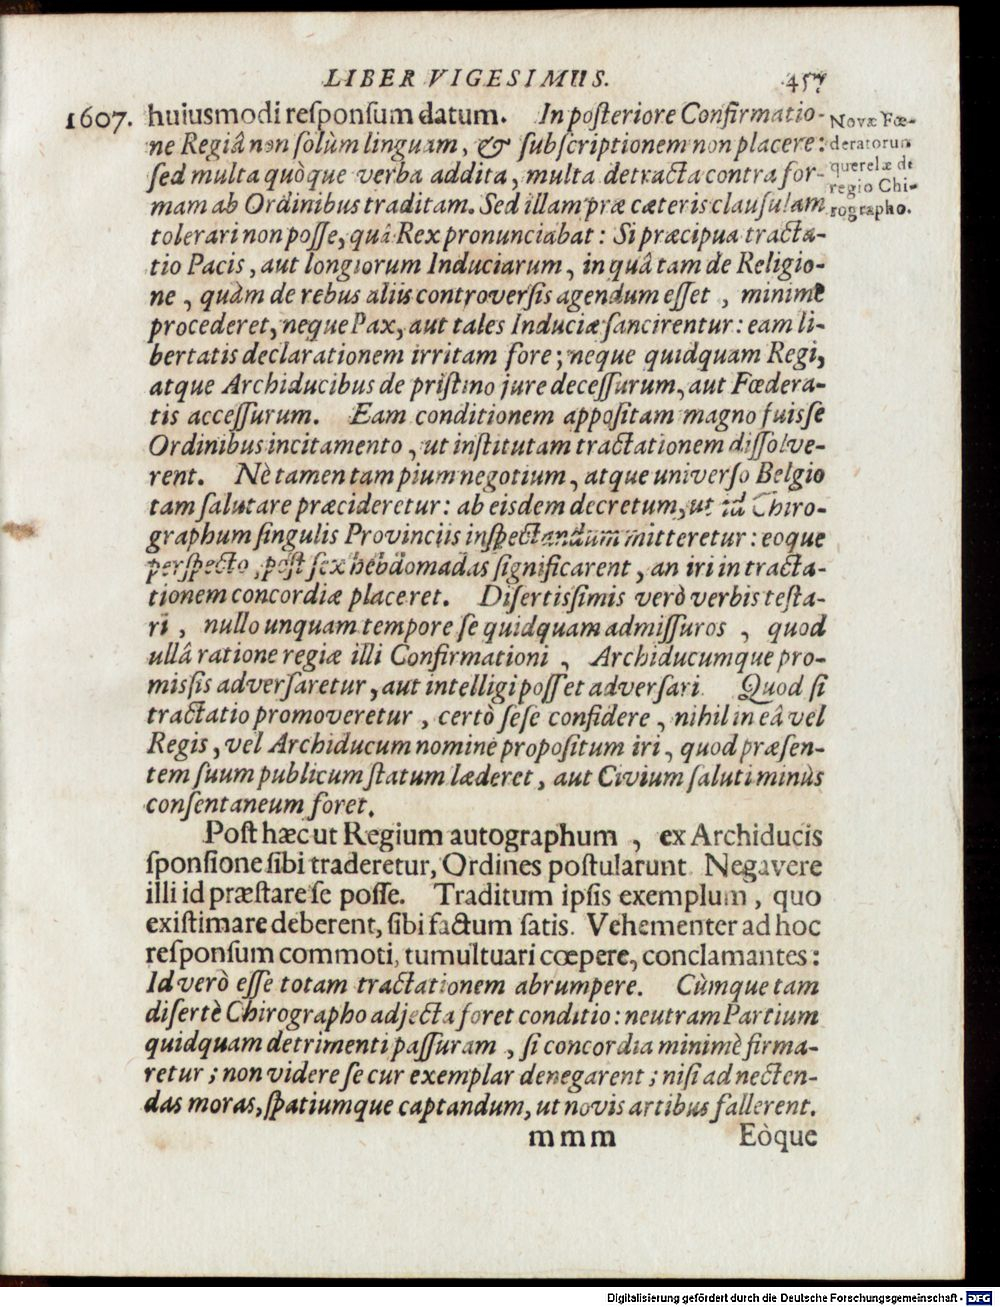 LIBER VIGESIMUS. 457
1607. huiusmodi reſponſum datum. In poſteriore Confirmatio-
ne Regiâ non ſolùm linguam, & ſubſcriptionem non placere:
ſed multa quòque verba addita, multa detracta contra for-
mam ab Ordinibus traditam. Sed illam præ cæteris clauſulam
tolerari non poſſe, quâ Rex pronunciabat: Si præcipua tracta-
tio Pacis, aut longiorum Induciarum, in quâ tam de Religio-
ne, quàm de rebus aliis controverſis agendum eſſet, minimè
procederet, neque Pax, aut tales Induciæ ſancirentur: eam li-
bertatis declarationem irritam fore; neque quidquam Regi,
atque Archiducibus de priſtino jure deceſſurum, aut Fœdera-
tis acceſſurum. Eam conditionem appoſitam magno fuiſſe
Ordinibus incitamento, ut inſtitutam tractationem diſſolve-
rent. Nè tamen tam pium negotium, atque univerſo Belgio
tam ſalutare præcideretur: ab eisdem decretum, ut id Chiro-
graphum ſingulis Provinciis inſpectandum mitteretur: eoque
perſpecto, poſt ſex hebdomadas ſignificarent, an iri in tracta-
tionem concordiæ placeret. Diſertiſſimis verò verbis teſta-
ri, nullo unquam tempore ſe quidquam admiſſuros, quod
ullâ ratione regiæ illi Confirmationi, Archiducumque pro-
miſſis adverſaretur, aut intelligi poſſet adverſari. Quod ſi
tractatio promoveretur, certò ſeſe confidere, nihil in eâ vel
Regis, vel Archiducum nomine propoſitum iri, quod præſen-
tem ſuum publicum ſtatum læderet, aut Civium ſaluti minùs
conſentaneum foret.
Poſt hæc ut Regium autographum, ex Archiducis
ſponſione ſibi traderetur, Ordines poſtularunt. Negavere
illi id præſtare ſe poſſe. Traditum ipſis exemplum, quo
exiſtimare deberent, ſibi factum ſatis. Vehementer ad hoc
reſponſum commoti, tumultuari cœpere, conclamantes:
Id verò eſſe totam tractationem abrumpere. Cùmque tam
diſertè Chirographo adjecta foret conditio: neutram Partium
quidquam detrimenti paſſuram, ſi concordia minimè firma-
retur; non videre ſe cur exemplar denegarent; niſi ad necten-
das moras, ſpatiumque captandum, ut novis artibus fallerent.
mmm Eòque
Novæ Fœ-
deratorum
querelæ de
regio Chi-
rographo.
Digitalisierung gefördert durch die Deutsche Forschungsgemeinschaft - DFG